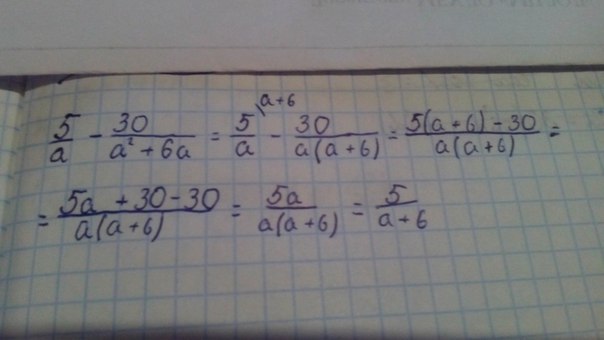 a+6
5/a − 30/(a² + 6a) = 5/a − 30/(a(a+6)) = (5(a+6) − 30)/(a(a+6)) =
= (5a + 30 − 30)/(a(a+6)) = 5a/(a(a+6)) = 5/(a+6)